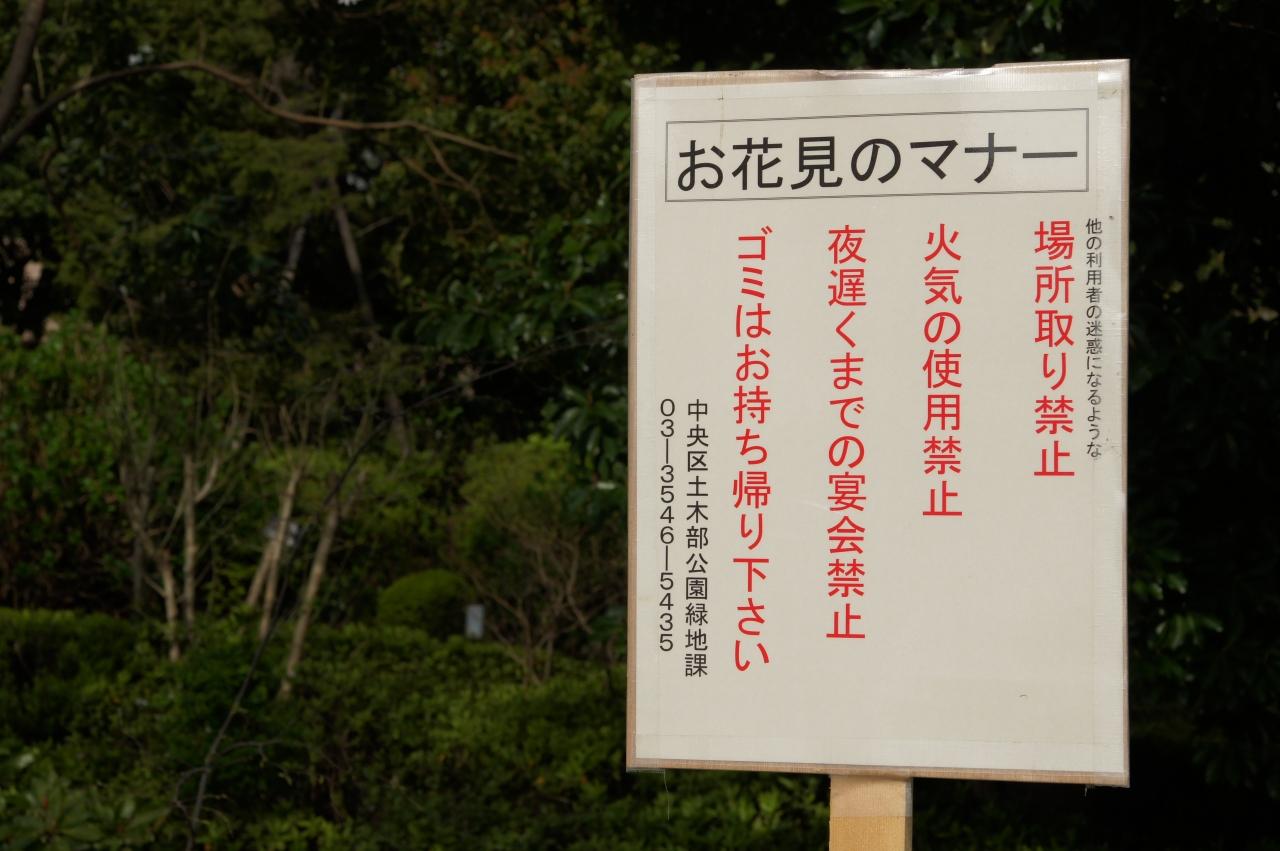 お花見のマナー
他の利用者の迷惑になるような
場所取り禁止
火気の使用禁止
夜遅くまでの宴会禁止
ゴミはお持ち帰り下さい
中央区土木部公園緑地課
03―3546―5435